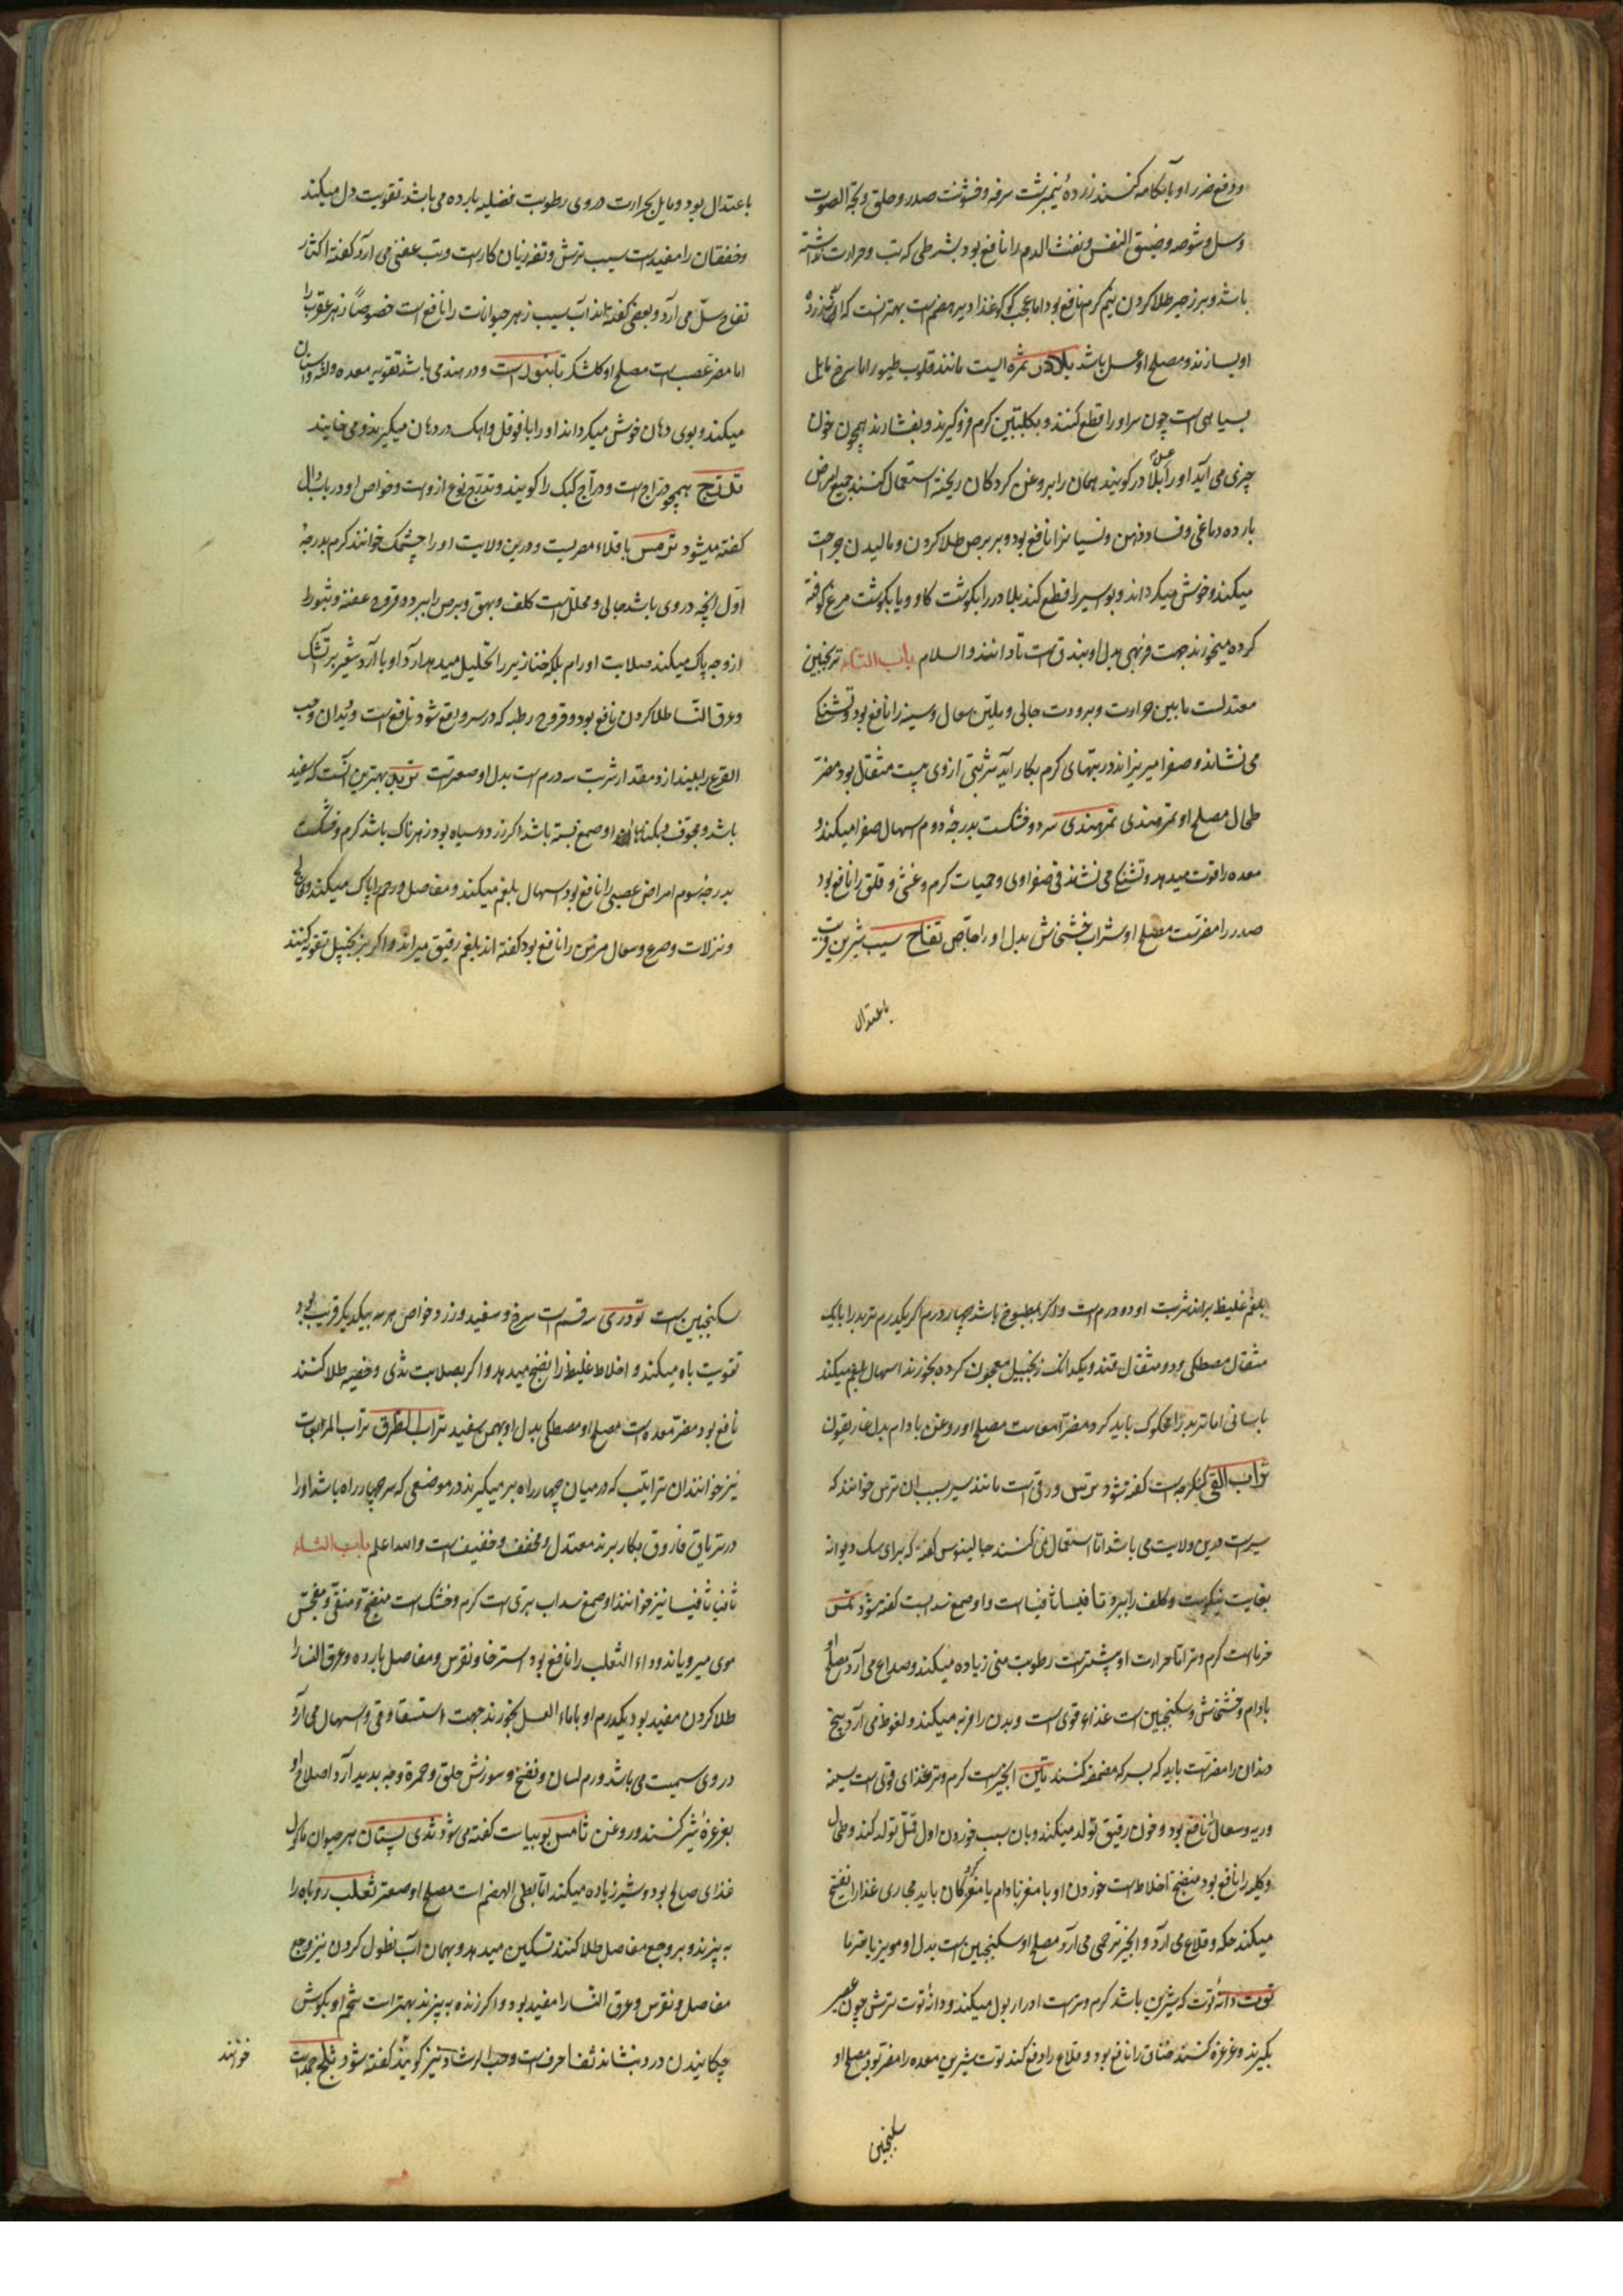 و دفع ضرر او بآبکامه کنند زرده نیم برشت سرفه و خشونت صدر و حلق و بحة الصوت
و سل و شوصه و ضیق النفس و نفث الدم را نافع بود بشرطی که تب و حرارت نداشته
باشد و بر زحیر طلا کردن نیم گرم نافع بود اما غذا دیر هضم است بهتر انست که زرده
او بسازند و مصلح او عسل باشد بلادر ثمره ایست مانند قلوب طیور اما سرخ مایل
بسیاهی است چون سر او را قطع کنند و بکلبتین گرم فرو گیرند و بفشارند همچون خون
چیزی می آید او را عسل بلادر گویند همان را بروغن گردکان ریخته استعمال کنند جمیع امراض
بارده دماغی و فساد ذهن و نسیانرا نافع بود و بر برص طلا کردن و مالیدن جراحت
میکند و خوش میگرداند و بواسیر را قطع کند بلادر را بگوشت گاو و یا بگوشت مرغ کوفته
کرده میخورند جهت فربهی بدل او بندق است تا دانند والسلام باب التاء ترنجبین
معتدلست ما بین حرارت و برودت جالی و ملین سعال و سینه را نافع بود و تشنگی
می نشاند و صفرا میریزاند در تبهای گرم بکار آید شربتی ازوی بیست مثقال بود مضر
طحال مصلح او تمر هندی تمر هندی سرد و خشکست بدرجه دوم اسهال صفرا میکند و
معده را قوت میدهد و تشنگی می نشاند قی صفراوی و حمیات گرم و غشی و قلق را نافع بود
صدر را مضرتست مصلح او شراب خشخاش بدل او را اجاص تفاح سیب شیرین
باعتدال
باعتدال بود و مایل بحرارت در وی رطوبت فضلیه بارده می باشد تقویت دل میکند
و خفقان را مفید است سیب ترش و تفه زیان کار است و تب عفنی می آرد گفته اکثار
تفاح سل می آرد و بعضی گفته اند آب سیب زهر حیوانات را نافع است خصوصا زهر عقرب را
اما مضر عصب است مصلح او گلشکر تانبول است و در هند می باشد تقویه معده و لثه و اسنان
میکند و بوی دهان خوش میگرداند او را با فوفل و آهک در دهان میگیرند و می خایند
تدرج همچو دراج است و دراج کبک را گویند و تدرج نوع ازوست و خواص او در باب دال
گفته میشود ترمس باقلاء مصریست و درین ولایت او را چشمک خوانند گرم بدرجه
اول انچه در وی باشد جالی و محلل است کلف و بهق و برص را ببرد و قروح عفنه و بثور را
از وجه پاک میکند صلابت اورام بلکه خنازیر را تحلیل میدهد آرد او با آرد شعیر بر آتشک
و عرق النسا طلا کردن نافع بود و قروح رطبه که در سر واقع شود نافع است و دیدان و حب
القرع را بیندازد و مقدار شربت سه درم است بدل او صعتر است تربد بهترین آنست که سفید
باشد و مجوف و بکنارهاء او صمغ بسته باشد اگر زرد و سیاه بود زهرناک باشد گرم و خشکست
بدرجه سوم امراض عصبی را نافع بود اسهال بلغم میکند و مفاصل و رحم را پاک میکند و فالج
و نزلات و صرع و سعال مزمن را نافع بود گفته اند بلغم رقیق میراند و اگر بزنجبیل تقویه کنند
بلغم غلیظ براند شربت او دو درم است و اگر مطبوخ باشد چهار درم اگر یکدرم تربد را با یک
مثقال مصطکی و دو مثقال قند و یکدانگ زنجبیل معجون کرده بخورند اسهال بلغم میکند
باسانی اما تربد را محکوک باید کرد مضر امعاست مصلح او روغن بادام بدل غاریقون
تراب القی کنگرست گفته شود ترس ورقی است مانند سیر بسبب ان ترس خوانند که
سیرست درین ولایت می باشد اما استعمال نمی کنند جالینوس گفته که برای سگ دیوانه
بغایت نیکوست و کلف را ببرد تافسیا ثافیا است و او صمغ سدابست گفته شود تمر
خرماست گرم و تر اما حرارت او بیشترست رطوبت منی زیاده میکند و صداع می آرد مصلح او
بادام و خشخاش و سکنجبین است غذاء قوی است و بدن را فربه میکند و لغوظ می آرد بیخ
دندان را مضر است باید که بسرکه مضمضه کنند تین انجیرست گرم و تر غذای قوی است سینه
و ریه و سعال را نافع بود و خون رقیق تولد میکند و بان سبب خوردن او قمل تولد کند و طحال
و کلیه را نافع بود منضج اخلاط است خوردن او با مغز بادام یا مغز گردکان باید مجاری غذا را تفتیح
میکند حکه و قلاع می آرد و انجیر تر حمی می آرد مصلح او سکنجبین است بدل او مویز یا خرما
توت دانه توت که شیرین باشد گرم و تر است ادرار بول میکند و دانه توت ترش چون عصیر
بگیرند و غرغره کنند خناق را نافع بود و قلاع را دفع کند توت شیرین معده را مضر بود مصلح او
سکنجبین
سکنجبین است تودری سه قسم است سرخ و سفید و زرد خواص هر سه بیکدیگر قریب بود
تقویت باه میکند و اخلاط غلیظ را نضج میدهد و اگر بصلابت ثدی و خصیه طلا کنند
نافع بود مضر معده است مصلح او مصطکی بدل او بهمن سفید تراب الطرق تراب المربعات
نیز خوانند ان ترابیست که در میان چهار راه بر میگیرند در موضعی که سر چهار راه باشد او را
در تریاق فاروق بکار برند معتدل و مجفف و خفیف است والله اعلم باب الثاء
ثافیا ثافسیا نیز خوانند او صمغ سداب بری است گرم و خشک است منضج و منقی و مفجر
موی میرویاند و داء الثعلب را نافع بود استرخا و نقرس و مفاصل بارده و عرق النسا را
طلا کردن مفید بود یکدرم او با ماء العسل بخورند جهت استسقا و قی و اسهال می آرد
در وی سمیت می باشد ورم لسان و نفخ و سوزش حلق و حمرة وجه بدید آرد اصلاح او
بغرغره شیر کنند و روغن ثامس بوبیاست گفته می شود ثدی پستان هر حیوان ماکول
غذای صالح بود و شیر زیاده میکند اما بطی الهضم است مصلح او صعتر ثعلب روباه را
به پزند و بر وجع مفاصل طلا کنند تسکین میدهد و بهمان آب نطول کردن نیز وجع
مفاصل و نقرس و عرق النسا را مفید بود و اگر زنده به پزند بهتر است شحم او بگوش
چکانیدن درد بنشاند ثفا حرف است و حب الرشاد نیز گویند گفته شود ثلج جمد است
خوانند